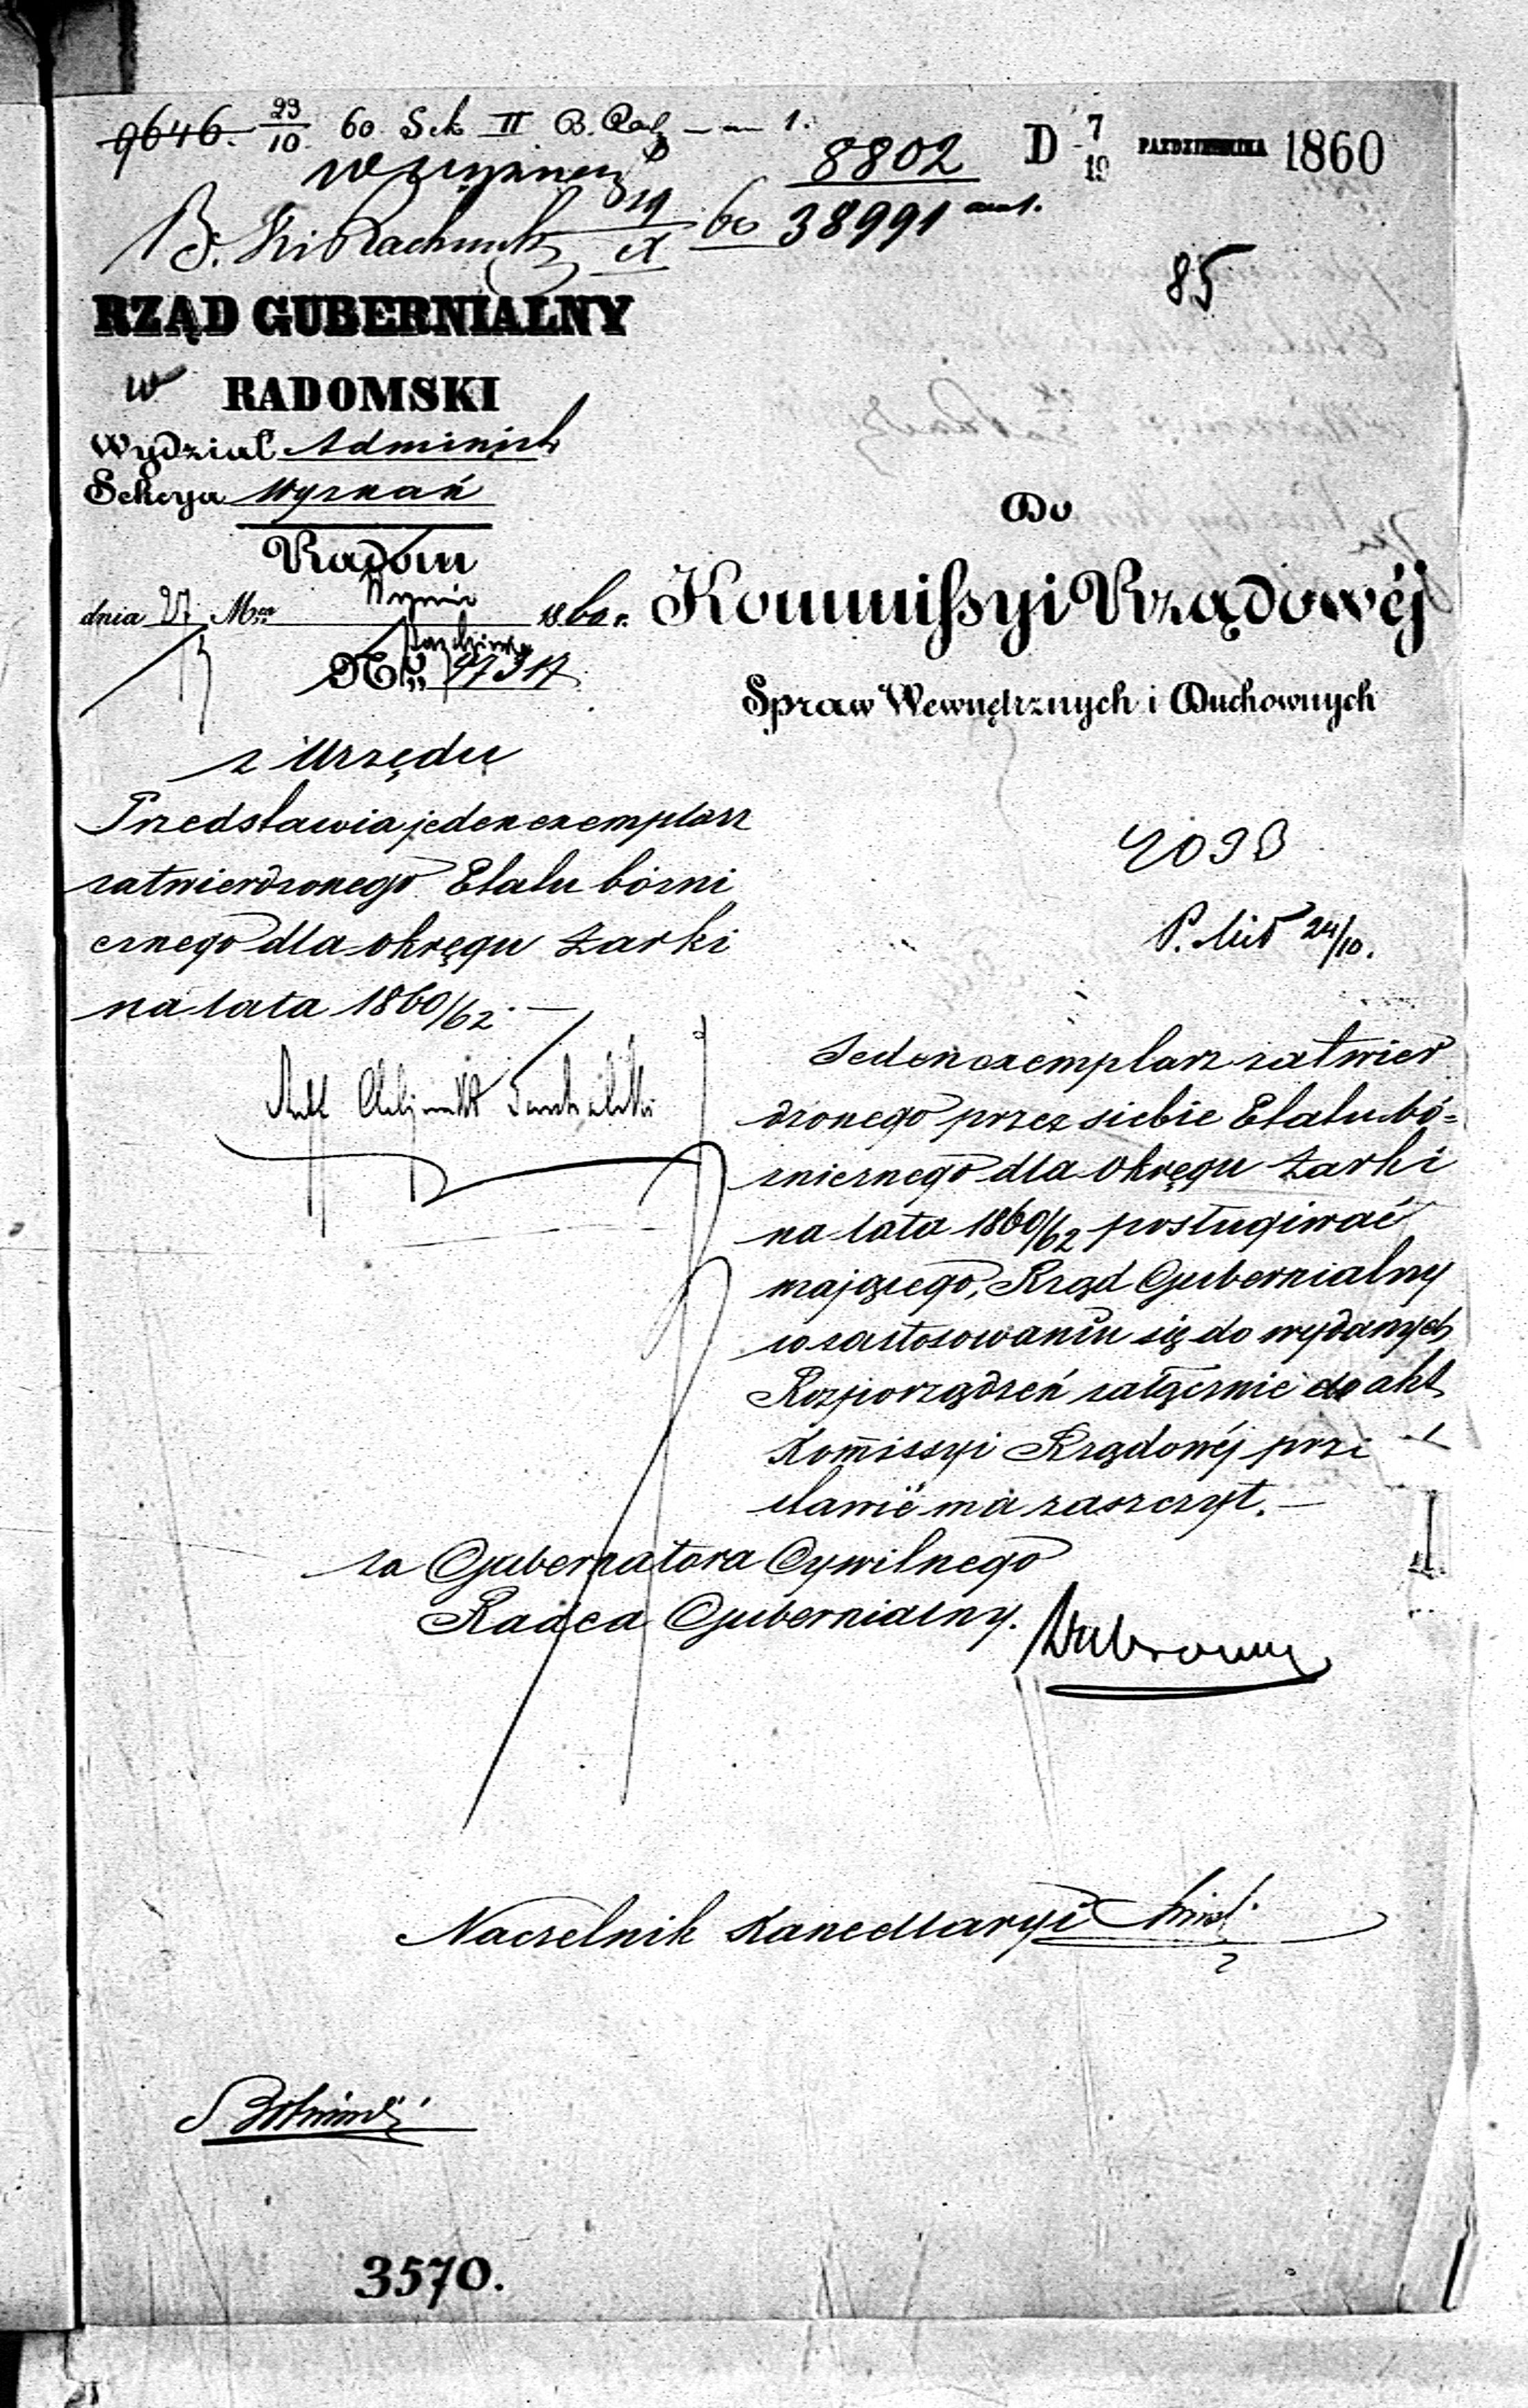 9646. 23/10 60 Sek II B.
8802
D 7/19 PAZDZIERNIKA 1860
B. 19/X 60 38991
85
RZĄD GUBERNIALNY
w RADOMSKI
Wydział Administ
Sekcya Wyznań
Radom
dnia 27 M Września 1860 r.
Października
No
Do
Kommissyi Rządowéj
Spraw Wewnętrznych i Duchownych
z Urzędu
Przedstawia jeden exemplarz
zatwierdzonego Etatu bózni
cznego dla okręgu Żarki
na lata 1860/62. —
24/10.
Jeden exemplarz zatwier
dzonego przez siebie Etatu bó=
znicznego dla okręgu Żarki
na lata 1860/62 posługiwać
mającego, Rząd Gubernialny
w zastosowaniu się do wydanych
Rozporządzeń załącznie do akt
Komissyi Rządowéj prze
sławić ma zaszczyt. —
za Gubernatora Cywilnego
Radca Gubernialny.
Naczelnik Kancellaryi
3570.